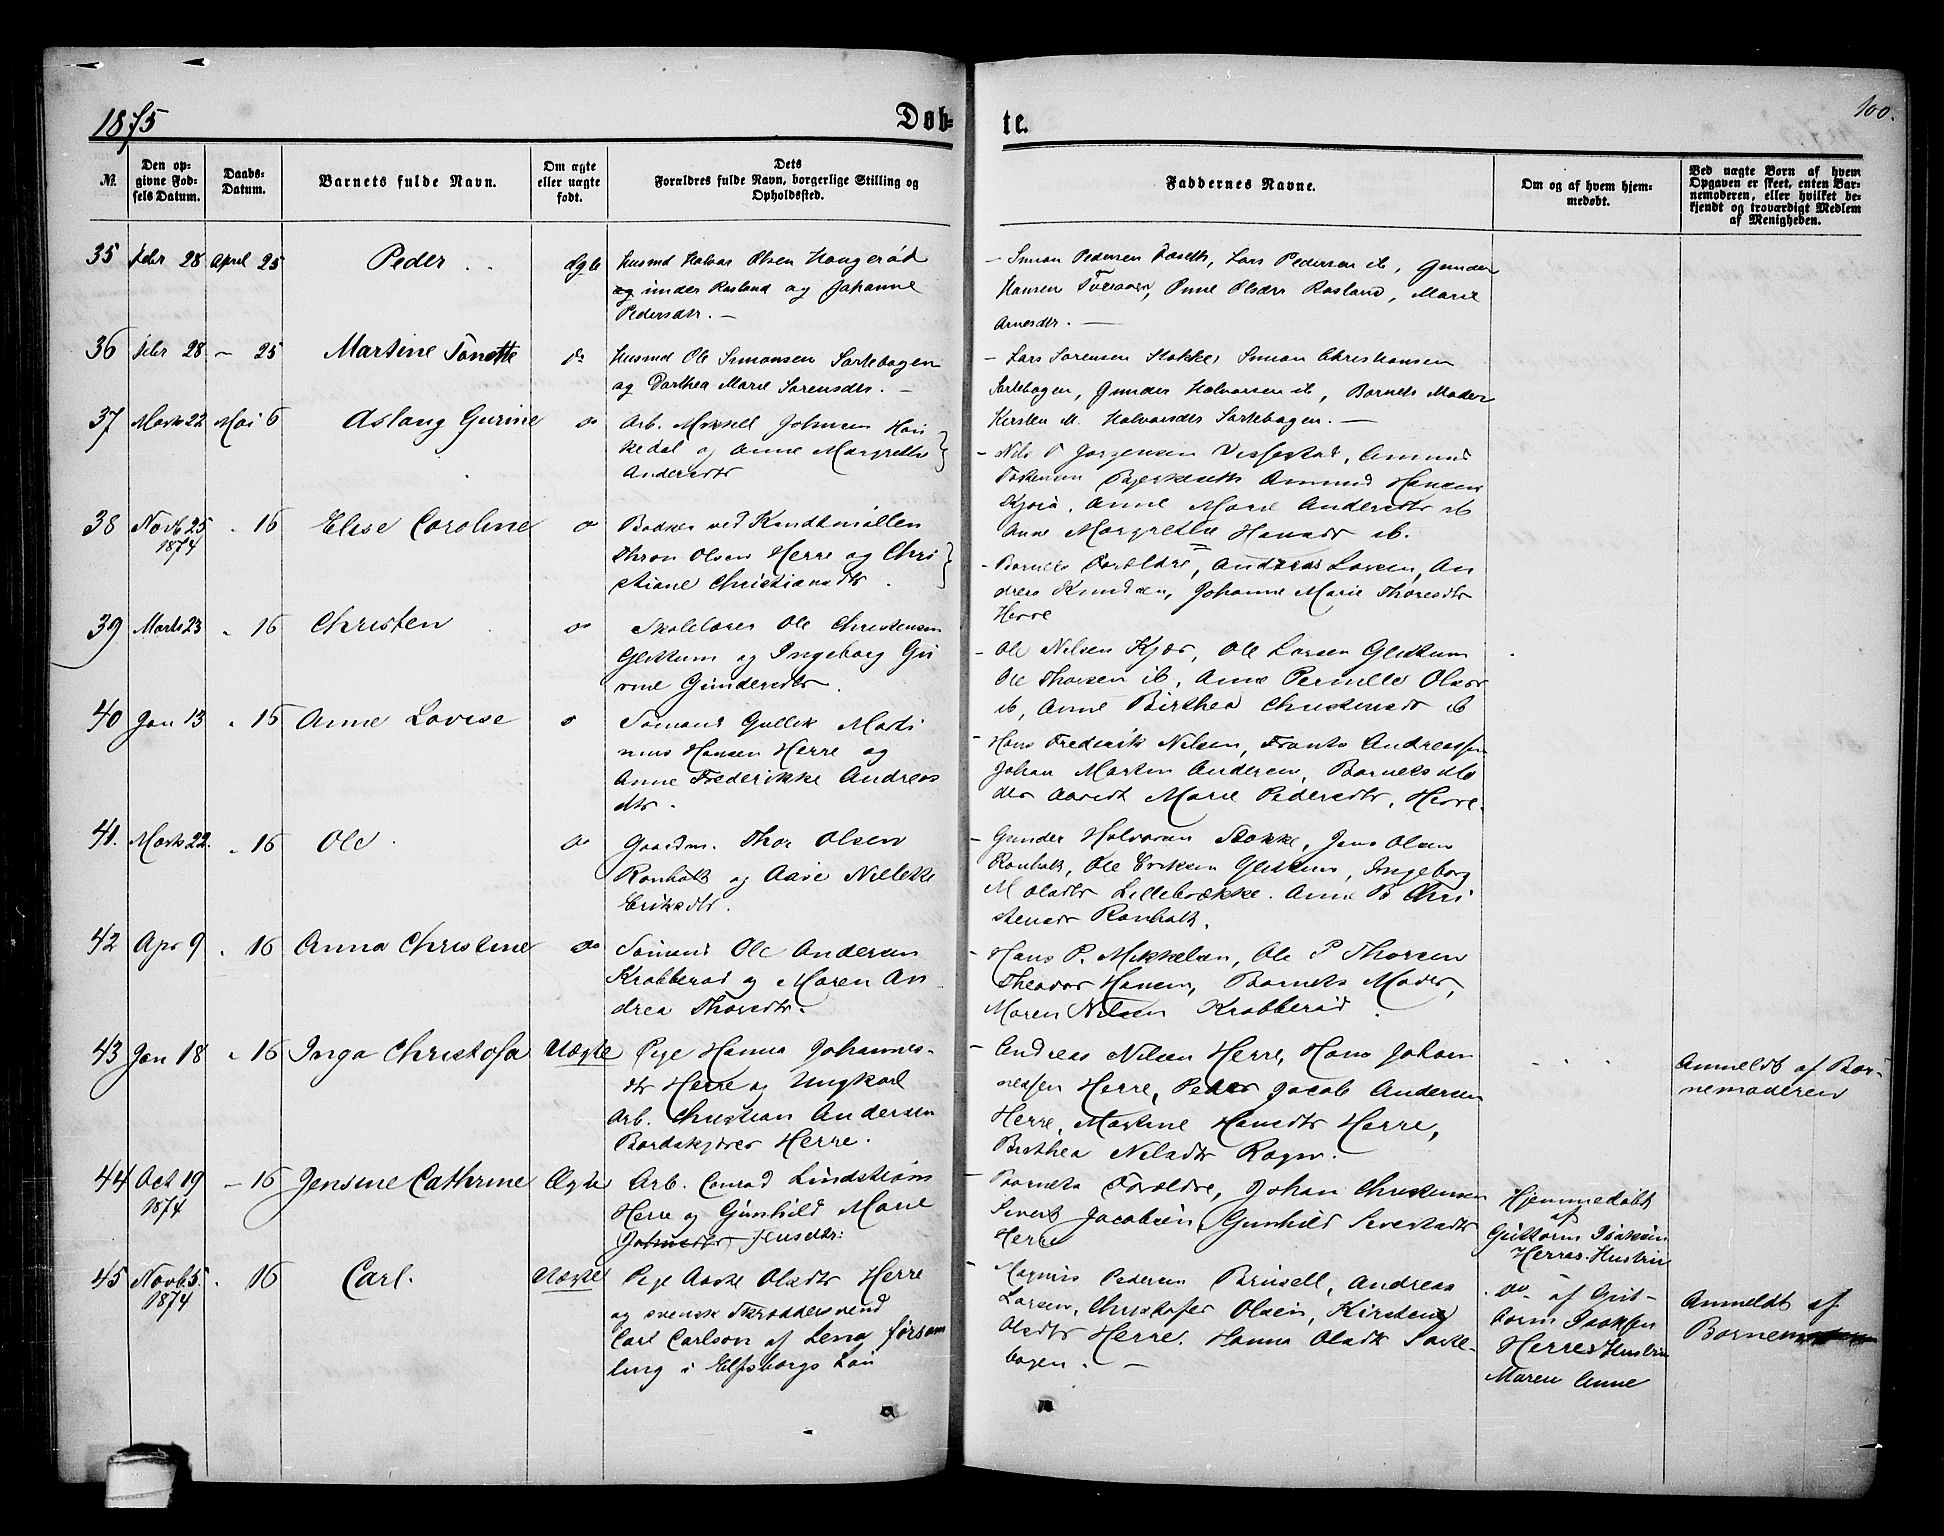 1875
Døb-
te.
100.
№.
Den op-
givne Fød-
sels Datum.
Daabs-
Datum.
Barnets fulde Navn.
Om ægte
eller uægte
født.
Dets
Forældres fulde Navn, borgerlige Stilling og
Opholdssted.
Faddernes Navne.
Om og af hvem hjem-
medøbt.
Ved uægte Børn af hvem
Opgaven er skeet, enten Bar-
nemoderen, eller hvilket be-
kjendt og troværdigt Medlem
af Menigheden.
35 Febr 28 April 25 Peder Ægte
Husmd Halvor Olsen Haagerød
og under Rosland og Johanne
Pedersdtr. —
— Simon Pedersen Lars Pedersen ib, Gunder
Hansen Olsdtr Rosland, Marie
Arnesdtr. —
36 Febr 28 — 25 Martine Tonette do
Husmd Ole Simonsen Sortebogen
og Dorthea Marie Sørensdtr. —
— Lars Sørensen Stokke, Simon Christiansen
Sortebogen, Gunder Halvorsen ib, Barnets Moder
Kirsten M. Halvorsdtr Sortebogen. —
37 Marts 22 Mai 6 Aslaug Gurine do
Arb. Johnsen
og Anne Margrethe
Andersdtr
— Nils P Jørgensen Amund
Amund Hansen
Anne Marie Andersdtr ib
Anne Margrethe Hansdtr ib.
38 Novb 25 1874 - 16 Elise Caroline do
Bødker ved Kundemøllen
Thron Olsen Herre og Chri
stiane Christiansdtr.
- Barnets Forældre, Andreas Larsen, An
ders Knudsen, Johanne Marie Thoresdtr
Herre
39 Marts 23 - 16 Christen do
Skolelærer Ole Christensen
Glittum og Ingeborg Gu
rine Gundersdtr.
- Ole Nilsen Kjær, Ole Larsen Glittum
Ole Thorsen ib, Anne Pernille Olsdtr
ib, Anne Birthea Christensdtr ib
40 Jan 13 - 16 Anne Lovise do
Sømand Gullik Marti
nius Hansen Herre og
Anne Frederikke Andreas
dtr.
- Hans Frederik Nilsen, Frants Andreassen
Johan Martin Andersen, Barnets Mo
der Marie Pedersdtr, Herre.
41. Marts 22. - 16 Ole do
Gaardm. Thor Olsen
Rønholt og Aase Nilleke
Eriksdtr.
- Gunder Halvorsen Stokke, Jens Olsen
Rønholt, Ole Eriksen Glittum, Ingeborg
M Olsdtr Lillebække. Anne B Chri
stensdtr Rønholt.
42 Apr 9 - 16 Anna Christine do
Sømand Ole Andersen
Krabberød og Maren An
drea Thorsdtr.
- Hans P. Mikkelsen, Ole P Thorsen
Theodor Hansen, Barnets Moder,
Maren Nilsen Krabberød.
43 Jan 18 - 16 Inga Christofa Uægte
Pige Hanna Johannes-
dtr Herre og Ungkarl
Arb. Christian Andersen
Bordskjærer Herre.
- Andreas Nilsen Herre, Hans Johan
nessen Herre, Peder Jacob Andersen
Herre, Martine Hansdtr Herre,
Birthea Nilsdtr
Anmeldt af Bar-
nemoderen
44 Oct 19 1874 — 16 Jensine Cathrine Ægte
Arb. Conrad Lindstrøm
Herre og Gunhild Marie
Johnsdtr Jensdtr:
- Barnets Forældre, Johan Christensen
Sivert Jacobsen, Gunhild Sivertsdtr
Herre
Hjemmedøbt
af
Guttorm Isaksen
Herres Hustru
45 Novb 5. 1874 - 16 Carl. Uægte
Pige Aaste Olsdtr Herre
og svensk Skræddersvend
Carl Carlson af Lena försam
ling i Elfsborgs Län
- Magnus Pedersen Brusell, Andreas
Larsen, Christofer Olsen, Kirstine
Olsdtr Herre. Hanna Olsdtr Sorte-
bogen. —
do af Gut-
torm Isaksen
Herres Hustru
Maren Anne
Anmeldt af